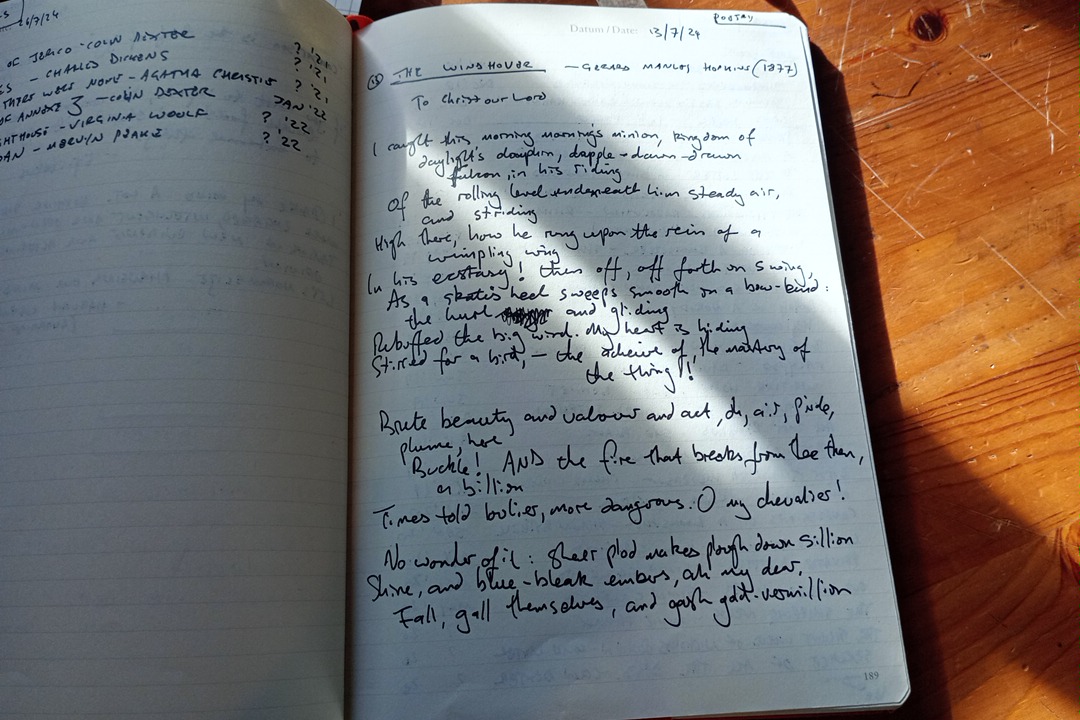 26/7/24
OF JERICO - COLIN DEXTER ? '21
- CHARLES DICKENS ? '21
THERE WERE NONE - AGATHA CHRISTIE ? '21
OF ANNEXE 3 - COLIN DEXTER JAN '22
GHTHOUSE - VIRGINIA WOOLF ? '22
- MERVYN PEAKE ? '22
POETRY
Datum / Date: 13/7/24
THE WINDHOVER - GERARD MANLEY HOPKINS (1877)
To Christ our Lord
I caught this morning morning's minion, kingdom of
daylight's dauphin, dapple-dawn-drawn
falcon, in his riding
Of the rolling level underneath him steady air,
and striding
High there, how he rung upon the rein of a
wimpling wing
In his ecstasy! then off, off forth on swing,
As a skate's heel sweeps smooth on a bow-bend:
the hurl and gliding
Rebuffed the big wind. My heart is hiding
Stirred for a bird, - the acheive of, the mastery of
the thing!
Brute beauty and valour and act, oh, air, pride,
plume, here
Buckle! AND the fire that breaks from thee then,
a billion
Times told
more dangerous. O my chevalier!
No wonder of it: sheer plod makes plough down sillion
Shine, and blue-bleak embers, ah my dear,
Fall, gall themselves, and gash gold-vermillion
189